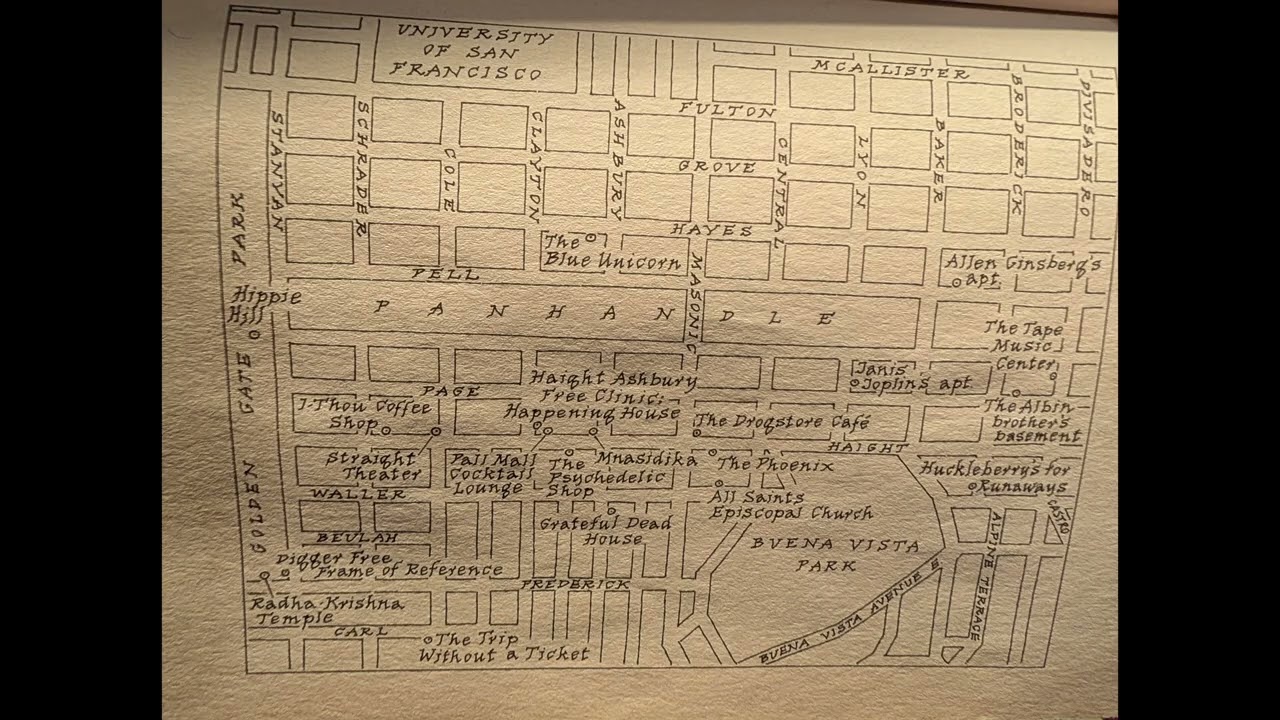 UNIVERSITY
OF SAN
FRANCISCO
MCALLISTER
BRODERICK
DIVISADERO
STANYAN
SCHRADER
COLE
CLAYTON
ASHBURY
FULTON
GROVE
CENTRAL
LYON
BAKER
HAYES
The
Blue Unicorn
MASONIC
Allen Ginsberg's
apt.
PELL
GOLDEN GATE PARK
Hippie
Hill
PANHANDLE
The Tape
Music
Center
Janis
Joplin's apt
PAGE
Haight Ashbury
Free Clinic;
Happening House
I-Thou Coffee
Shop
The Drogstore Café
The Albin-
brother's
basement
HAIGHT
Straight
Theater
Pall Mall
Cocktail
Lounge
The
Psychedelic
Shop
Mnasidika
The Phoenix
Huckleberry's for
Runaways
WALLER
All Saints
Episcopal Church
CASTRO
Grateful Dead
House
BEULAH
BUENA VISTA
PARK
ALPINE TERRACE
Digger Free
Frame of Reference
FREDERICK
Radha-Krishna
Temple
CARL
The Trip
Without a Ticket
BUENA VISTA AVENUE E